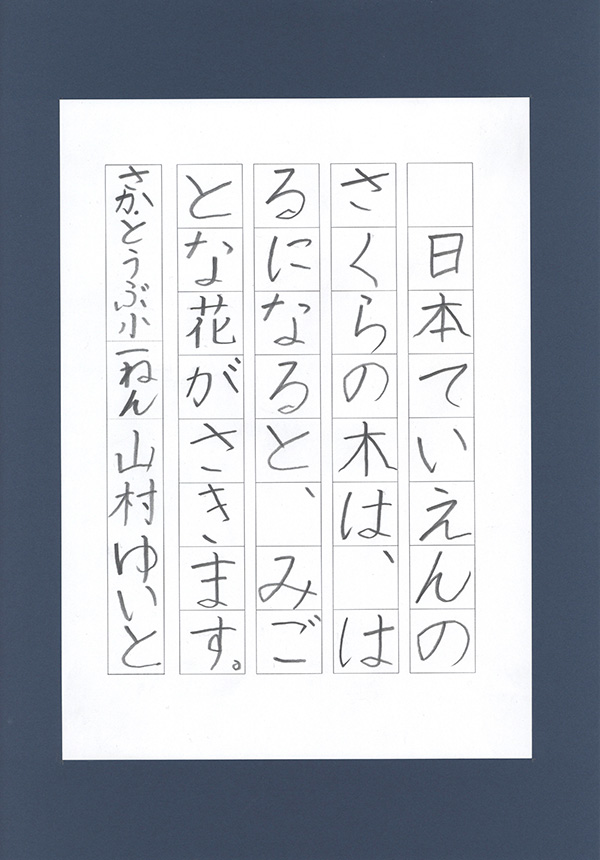 日本ていえんの
さくらの木は、は
るになると、みご
とな花がさきます。
さか・とうぶ小一ねん 山村ゆいと